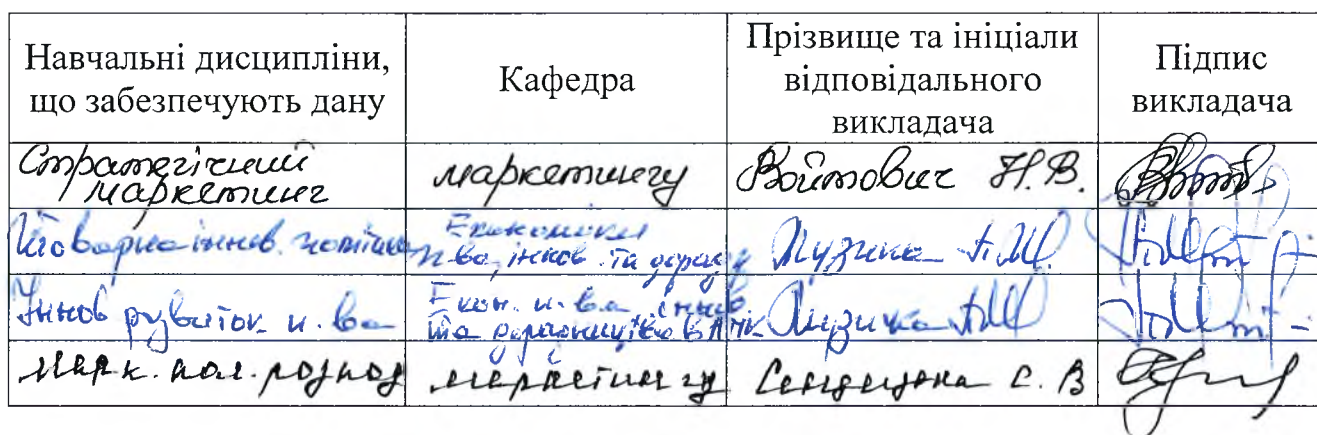 Навчальні дисципліни, що забезпечують дану
Кафедра
Прізвище та ініціали відповідального викладача
Підпис викладача
Стратегічний маркетинг
маркетингу
Войтович Н.В.
Товарна іннов. політика
Економіки п-ва, іннов. та дорад.
Музика П.М.
Іннов розвиток п-ва
Екон. п-ва іннов та дорадництва в АПК
Музика П.М
Марк. пол. розпод
маркетингу
С. В